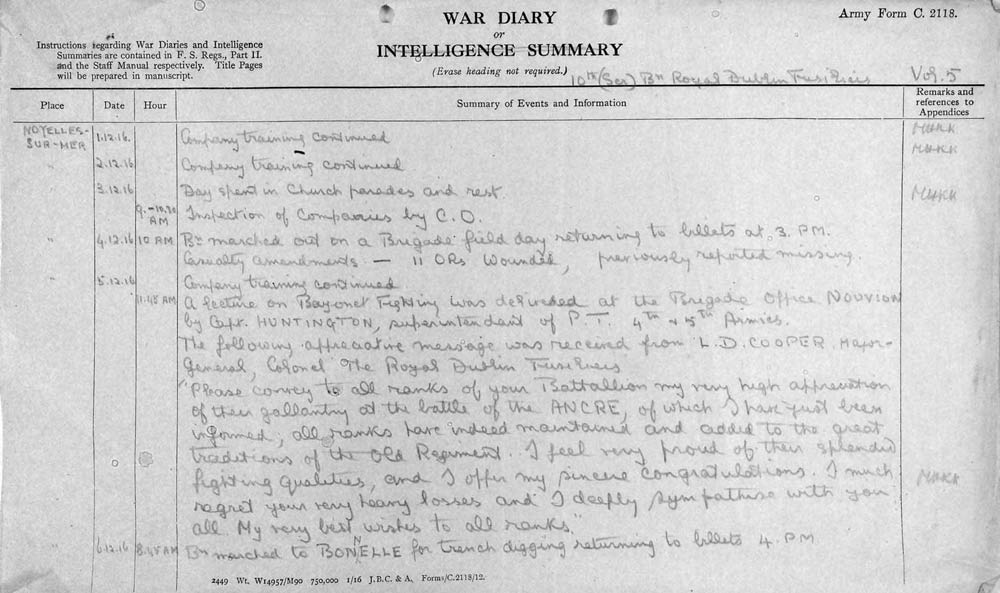 WAR DIARY
or
INTELLIGENCE SUMMARY
(Erase heading not required.)
Army Form C. 2118.
Instructions regarding War Diaries and Intelligence
Summaries are contained in F. S. Regs., Part II.
and the Staff Manual respectively. Title Pages
will be prepared in manuscript.
10th (Ser) Bn Royal Dublin Fusiliers Vol. 5
Place Date Hour Summary of Events and Information Remarks and
references to
Appendices
NOYELLES-
SUR-MER 1.12.16. Company training continued
" 2.12.16 Company training continued
" 3.12.16 Day spent in Church parades and rest.
9.-10.30
AM Inspection of Companies by C.O.
" 4.12.16 10 AM Bn marched out on a Brigade field day returning to billets at 3. PM.
Casualty amendments — 11 ORs Wounded, previously reported missing.
" 5.12.16 Company training continued
11.45 AM A lecture on Bayonet Fighting was delivered at the Brigade Office NOUVION
by Capt. HUNTINGTON, superintendant of P.T. 4th & 5th Armies.
The following appreciative message was received from L.D. COOPER, Major-
General, Colonel The Royal Dublin Fusiliers
"Please convey to all ranks of your Battallion my very high appreciation
of their gallantry at the battle of the ANCRE, of which I have just been
informed; all ranks have indeed maintained and added to the great
traditions of the Old Regiment. I feel very proud of their splendid
fighting qualities, and I offer my sincere congratulations. I much
regret your very heavy losses and I deeply sympathise with you
all. My very best wishes to all ranks."
" 6.12.16 8.45 AM Bn marched to BONNELLE for trench digging returning to billets 4. PM
2449 Wt. W14957/M90 750,000 1/16 J.B.C. & A. Forms/C.2118/12.